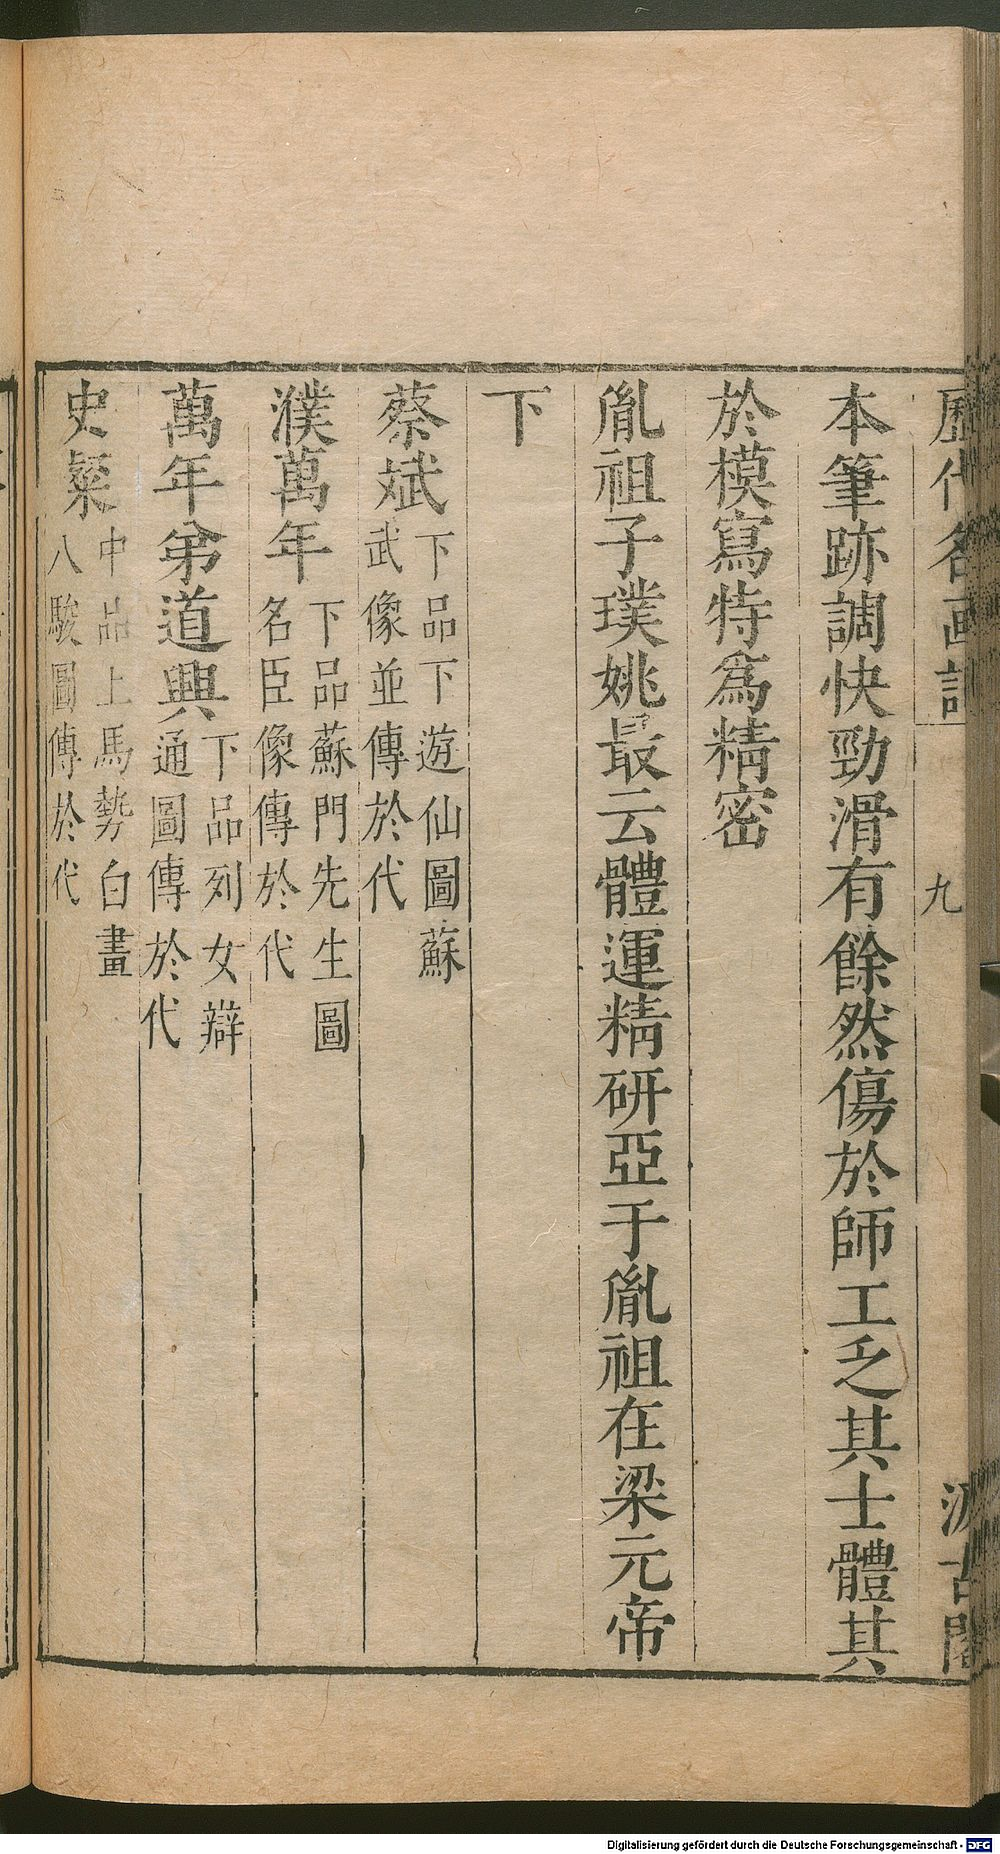 歷代名画記
九
汲古閣
本筆跡調快勁滑有餘然傷於師工乏其士體其
於模寫特爲精密
胤祖子璞姚最云體運精研亞于胤祖在梁元帝
下
蔡斌下品下遊仙圖蘇
武像並傳於代
濮萬年下品蘇門先生圖
名臣像傳於代
萬年弟道興下品列女辯
通圖傳於代
史粲中品上馬勢白畫
八駿圖傳於代
Digitalisierung gefördert durch die Deutsche Forschungsgemeinschaft - DFG